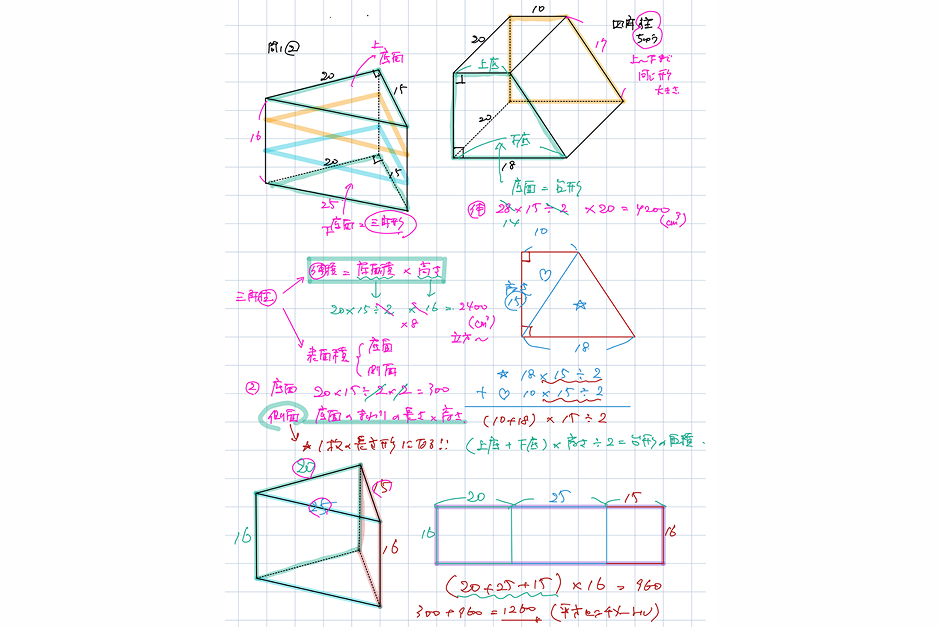 問1②
上
底面
20
15
16
20
15
25
下底面=三角形
10
四角柱
ちゅう
上〜下が
同じ形
大きさ
20
17
上底
20
下底
18
底面=台形
28×15÷2 ×20=4200
14
(cm³)
体積=底面積×高さ
三角柱
20×15÷2 × 16=2400
×8
(cm³)
立方〜
表面積
底面
側面
10
高さ
15
♡
★
18
② 底面 20×15÷2×2=300
側面 底面のまわりの長さ×高さ
★1枚の長方形になる!!
★ 18×15÷2
+ ♡ 10×15÷2
(10+18)×15÷2
(上底+下底)×高さ÷2=台形の面積
20
15
25
16
16
20 25 15
16
16
(20+25+15)×16=960
300+960=1260 (平方センチメートル)